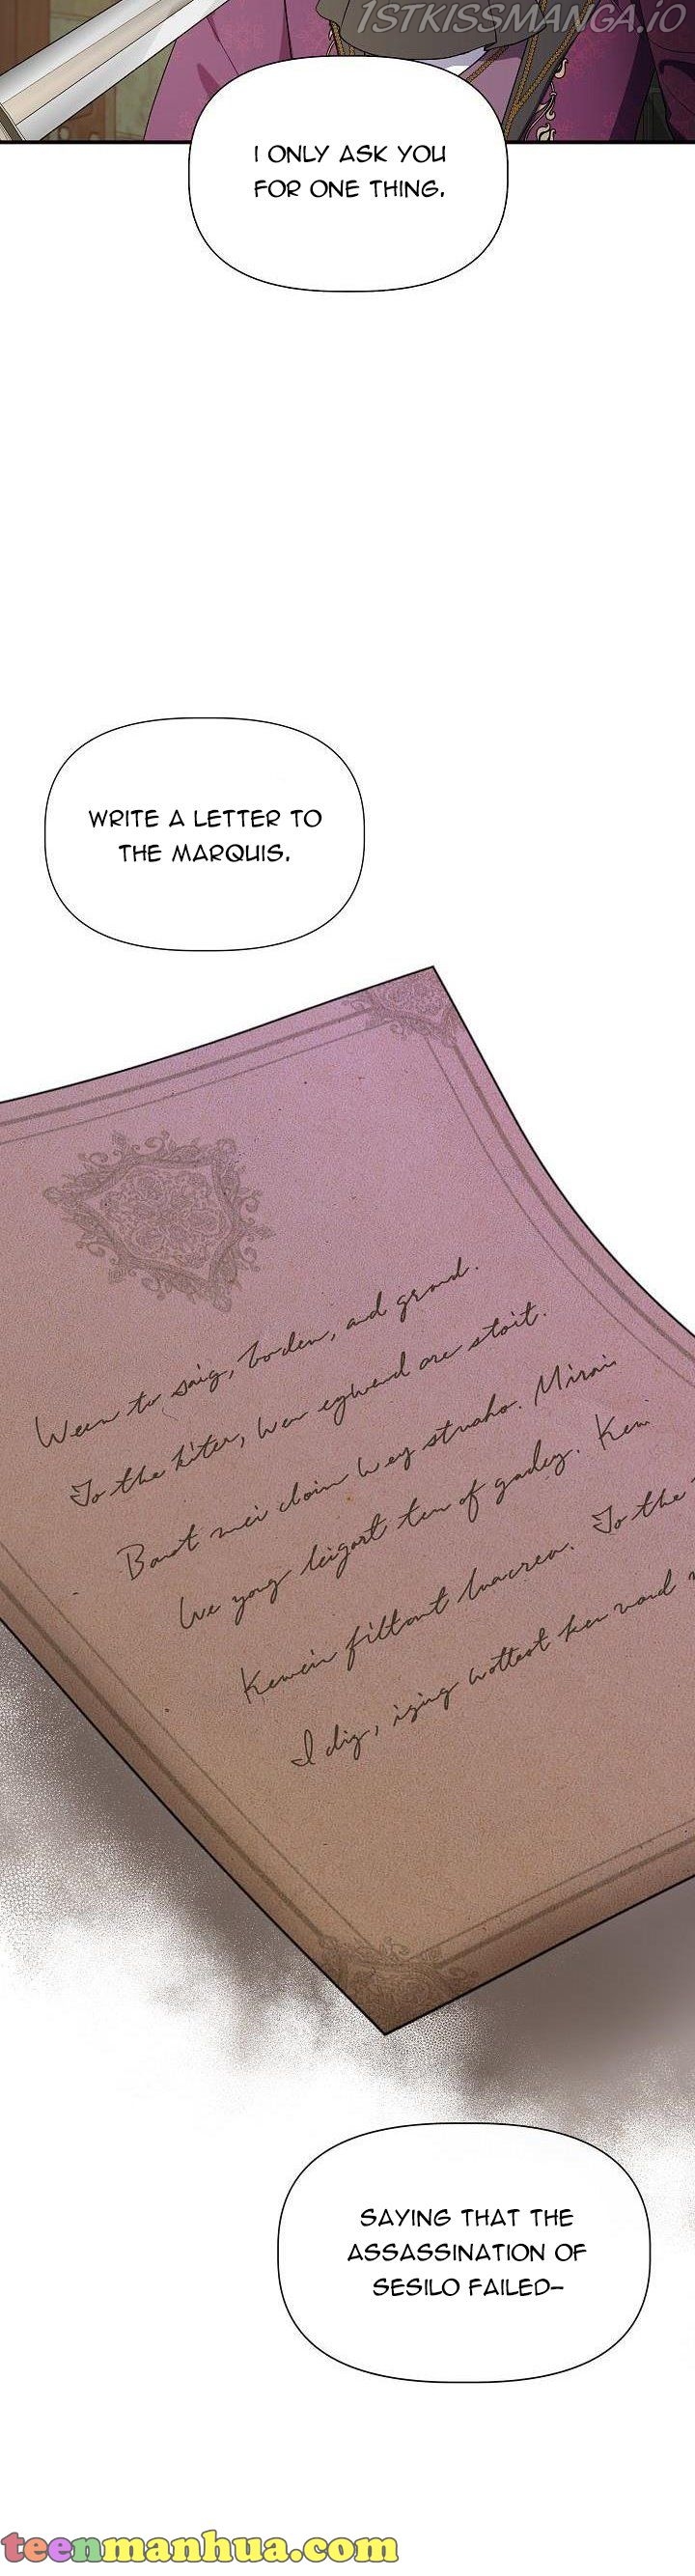 1STKISSMANGA.IO
I ONLY ASK YOU
FOR ONE THING.
WRITE A LETTER TO
THE MARQUIS.
Ween to saig, boden, and grond.
To the kiter, wen egwend are stoit.
Banot mei doin wey struaho. Mirai
We yong leigort ten of gadey. Kewi
Kewein filtont luacrea. To the
I dig, izing wottest ken vand
SAYING THAT THE
ASSASSINATION OF
SESILO FAILED-
teenmanhua.com